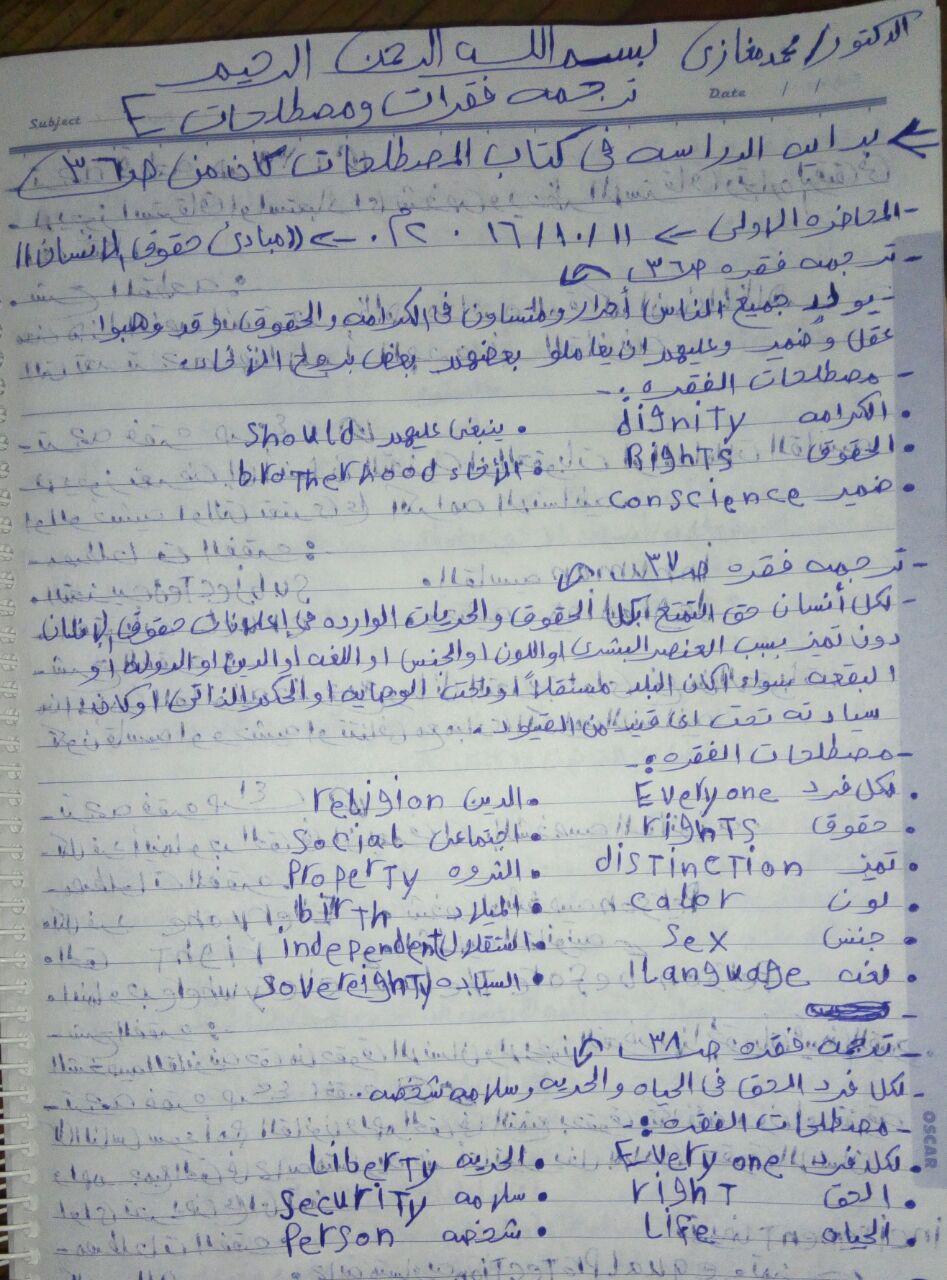 الدكتور/ محمد مغازى بسم الله الرحمن الرحيم
Subject ترجمه فقرات ومصطلحات E Date / /
بدايه الدراسه فى كتاب المصطلحات من ص ٣٦
- المحاضره الاولى ← ١١/١٠/٢٠١٦ ← ((مبادئ حقوق الانسان))
- ترجمه فقره ص ٣٦
- يولد جميع الناس أحرار ومتساون فى الكرامه والحقوق وقد وهبوا
عقل وضمير وعليهم ان يعاملوا بعضهم بعض بروح الإخاء
- مصطلحات الفقره :-
. الكرامه dignity . ينبغى عليهم Should
. الحقوق Rights . الإخاء brotherhood
. ضمير conscience
- ترجمه فقره ص ٣٧
- لكل أنسان حق التمتع بكل الحقوق والحريات الوارده فى إعلانات حقوق الإنسان
دون تميز بسبب العنصر البشرى او اللون او الجنس او اللغه او الدين او الدوله او
البقعه سواء اكان البلد مستقلاً او تحت الوصايه او الحكم الذاتى او كانت
سيادته تحت اى قيد من القيود
- مصطلحات الفقره :-
. لكل فرد Everyone . الدين religion
. حقوق rights . اجتماعى Social
. تميز distinction . الثروه Property
. لون color . الميلاد birth
. جنس Sex . استقلال independent
. لغه Language . السياده Sovereighty
- ترجمه فقره ص ٣٨
- لكل فرد الحق فى الحياه والحريه وسلامه شخصه .
- مصطلحات الفقره :-
. لكل فرد Every one . الحريه liberty
. الحق right . سلامه Security
. الحياه Life . شخصه Person
OSCAR